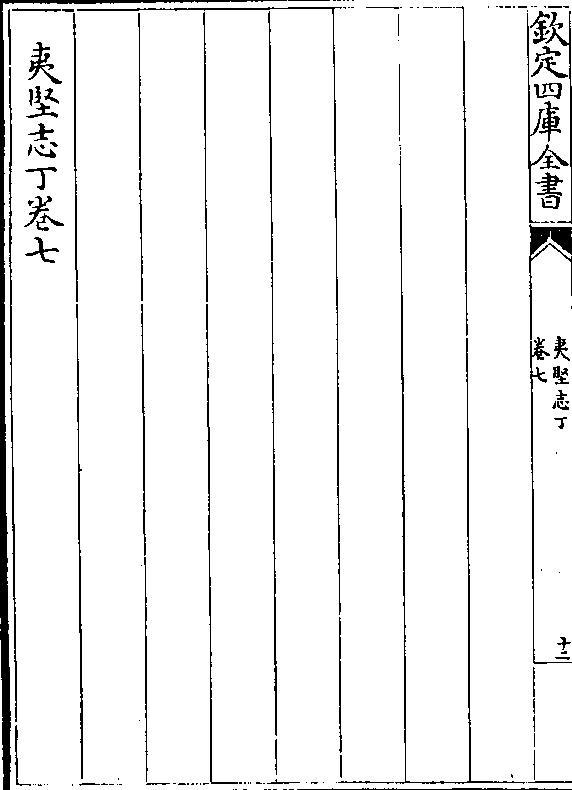 欽定四庫全書
夷堅志丁
卷七
十二
夷堅志丁卷七